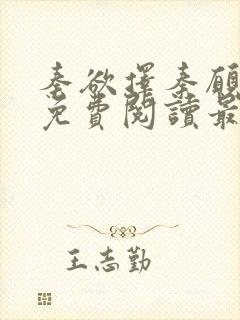 秦欲擇秦願
免費閱讀最
王志勤